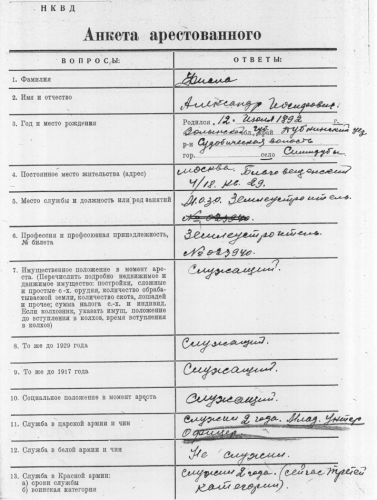 НКВД
Анкета арестованного
ВОПРОСЫ:
ОТВЕТЫ:
1. Фамилия
2. Имя и отчество
Александр Иосифович.
3. Год и место рождения
Родился 12. Июня 1892
Волынской губ. край Дубнинский уезд
р-н Судобическая волость
гор. село
4. Постоянное место жительства (адрес)
Москва. Благовещенский
4/18. кв. 29.
5. Место службы и должность или род занятий
Мозо. Землеустроитель.
№ 023940.
6. Профессия и профсоюзная принадлежность,
№ билета
Землеустроитель.
№ 023940.
7. Имущественное положение в момент аре-
ста. (Перечислить подробно недвижимое и
движимое имущество: постройки, сложные
и простые с.-х. орудия, количество обраба-
тываемой земли, количество скота, лошадей
и прочее; сумма налога с.-х. и индивид.
Если колхозник, указать имущ. положение
до вступления в колхоз, время вступления
в колхоз)
Служащий.
8. То же до 1929 года
Служащий.
9. То же до 1917 года
Служащий.
10. Социальное положение в момент ареста
Служащий.
11. Служба в царской армии и чин
Служил 2 года. Млад. унтер
Офицер.
12. Служба в белой армии и чин
Не служил.
13. Служба в Красной армии:
а) сроки службы
б) воинская категория
Служил 2 года. (сейчас третей
категории).